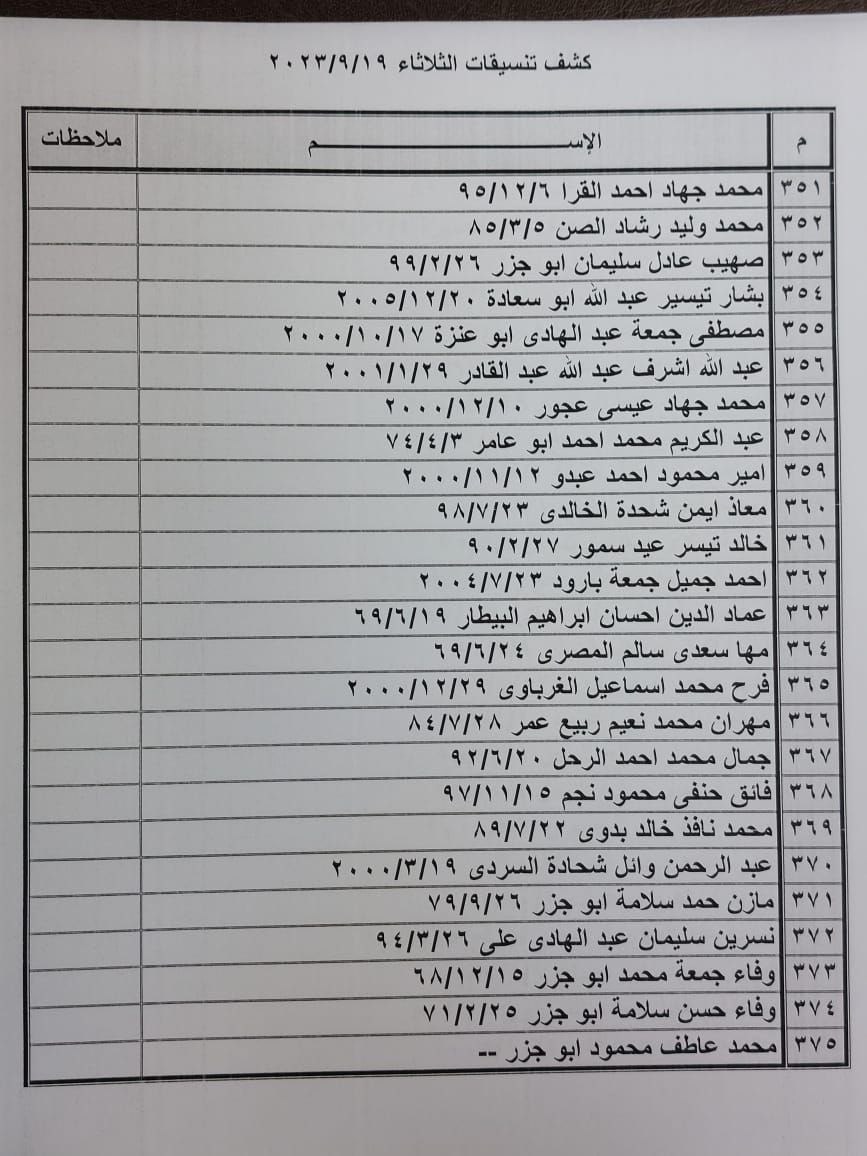 كشف تنسيقات الثلاثاء ٢٠٢٣/٩/١٩
م الإســــــــم ملاحظات
٣٥١ محمد جهاد احمد القرا ٩٥/١٢/٦
٣٥٢ محمد وليد رشاد الصن ٨٥/٣/٥
٣٥٣ صهيب عادل سليمان ابو جزر ٩٩/٢/٢٦
٣٥٤ بشار تيسير عبد الله ابو سعادة ٢٠٠٥/١٢/٢٠
٣٥٥ مصطفى جمعة عبد الهادى ابو عنزة ٢٠٠٠/١٠/١٧
٣٥٦ عبد الله اشرف عبد الله عبد القادر ٢٠٠١/١/٢٩
٣٥٧ محمد جهاد عيسى عجور ٢٠٠٠/١٢/١٠
٣٥٨ عبد الكريم محمد احمد ابو عامر ٧٤/٤/٣
٣٥٩ امير محمود احمد عبدو ٢٠٠٠/١١/١٢
٣٦٠ معاذ ايمن شحدة الخالدى ٩٨/٧/٢٣
٣٦١ خالد تيسر عيد سمور ٩٠/٢/٢٧
٣٦٢ احمد جميل جمعة بارود ٢٠٠٤/٧/٢٣
٣٦٣ عماد الدين احسان ابراهيم البيطار ٦٩/٦/١٩
٣٦٤ مها سعدى سالم المصرى ٦٩/٦/٢٤
٣٦٥ فرح محمد اسماعيل الغرباوى ٢٠٠٠/١٢/٢٩
٣٦٦ مهران محمد نعيم ربيع عمر ٨٤/٧/٢٨
٣٦٧ جمال محمد احمد الرحل ٩٢/٦/٢٠
٣٦٨ فائق حنفى محمود نجم ٩٧/١١/١٥
٣٦٩ محمد نافذ خالد بدوى ٨٩/٧/٢٢
٣٧٠ عبد الرحمن وائل شحادة السردى ٢٠٠٠/٣/١٩
٣٧١ مازن حمد سلامة ابو جزر ٧٩/٩/٢٦
٣٧٢ نسرين سليمان عبد الهادى على ٩٤/٣/٢٦
٣٧٣ وفاء جمعة محمد ابو جزر ٦٨/١٢/١٥
٣٧٤ وفاء حسن سلامة ابو جزر ٧١/٢/٢٥
٣٧٥ محمد عاطف محمود ابو جزر --